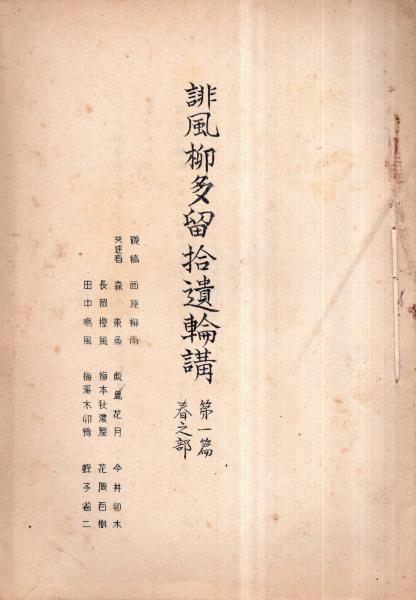 誹風柳多留拾遺輪講
第一篇
春之部
礫橋 西原柳雨
共述者 森 東魚 飯島花月 今井卯木
長岡橙風 梅本秋濃屋 花岡百樹
田中鳴風 梅溪木卯 蛭子省二